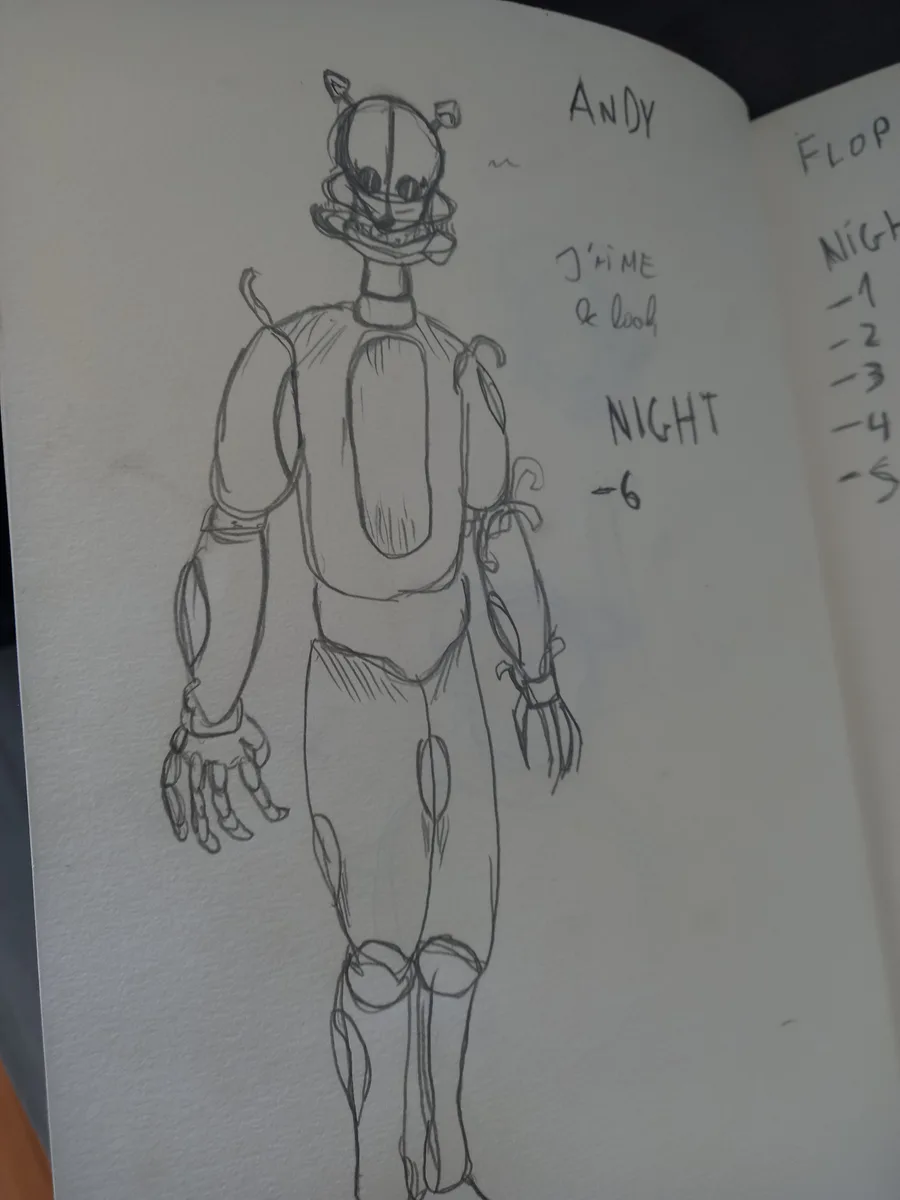 ANDY
J'AIME
le look
NIGHT
-6
FLOP
NIGH
-1
-2
-3
-4
-5